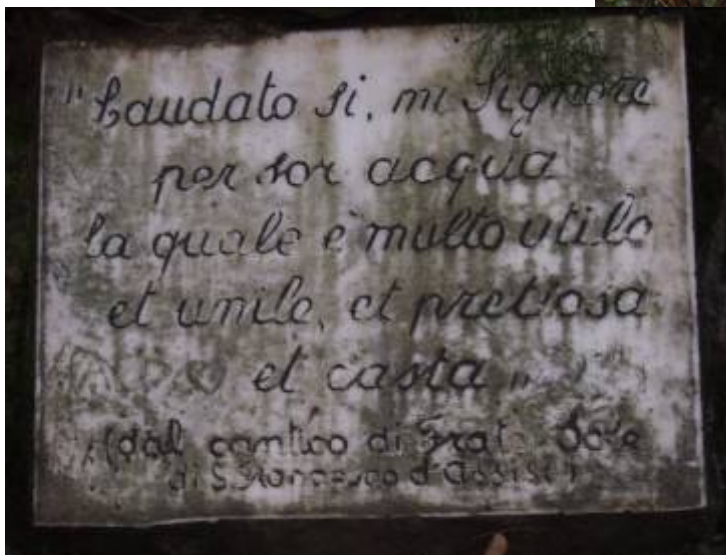 "Laudato si, mi Signore
per sor acqua
la quale è multo utile
et umile, et pretiosa
et casta"
(dal cantico di Frate Sole
di S. Francesco d'Assisi)